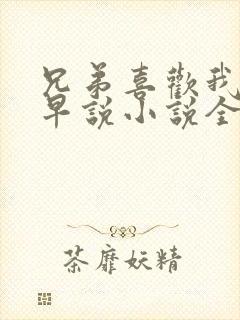 兄弟喜歡我
早說小說全
荼靡妖精